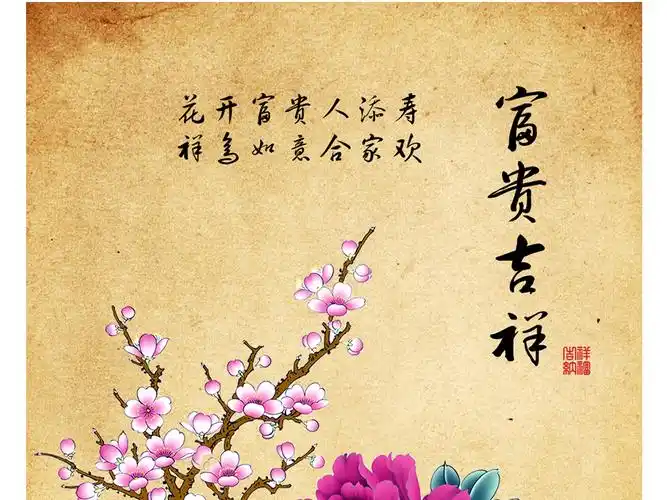 花开富贵人添寿
祥鸟如意合家欢
富贵吉祥